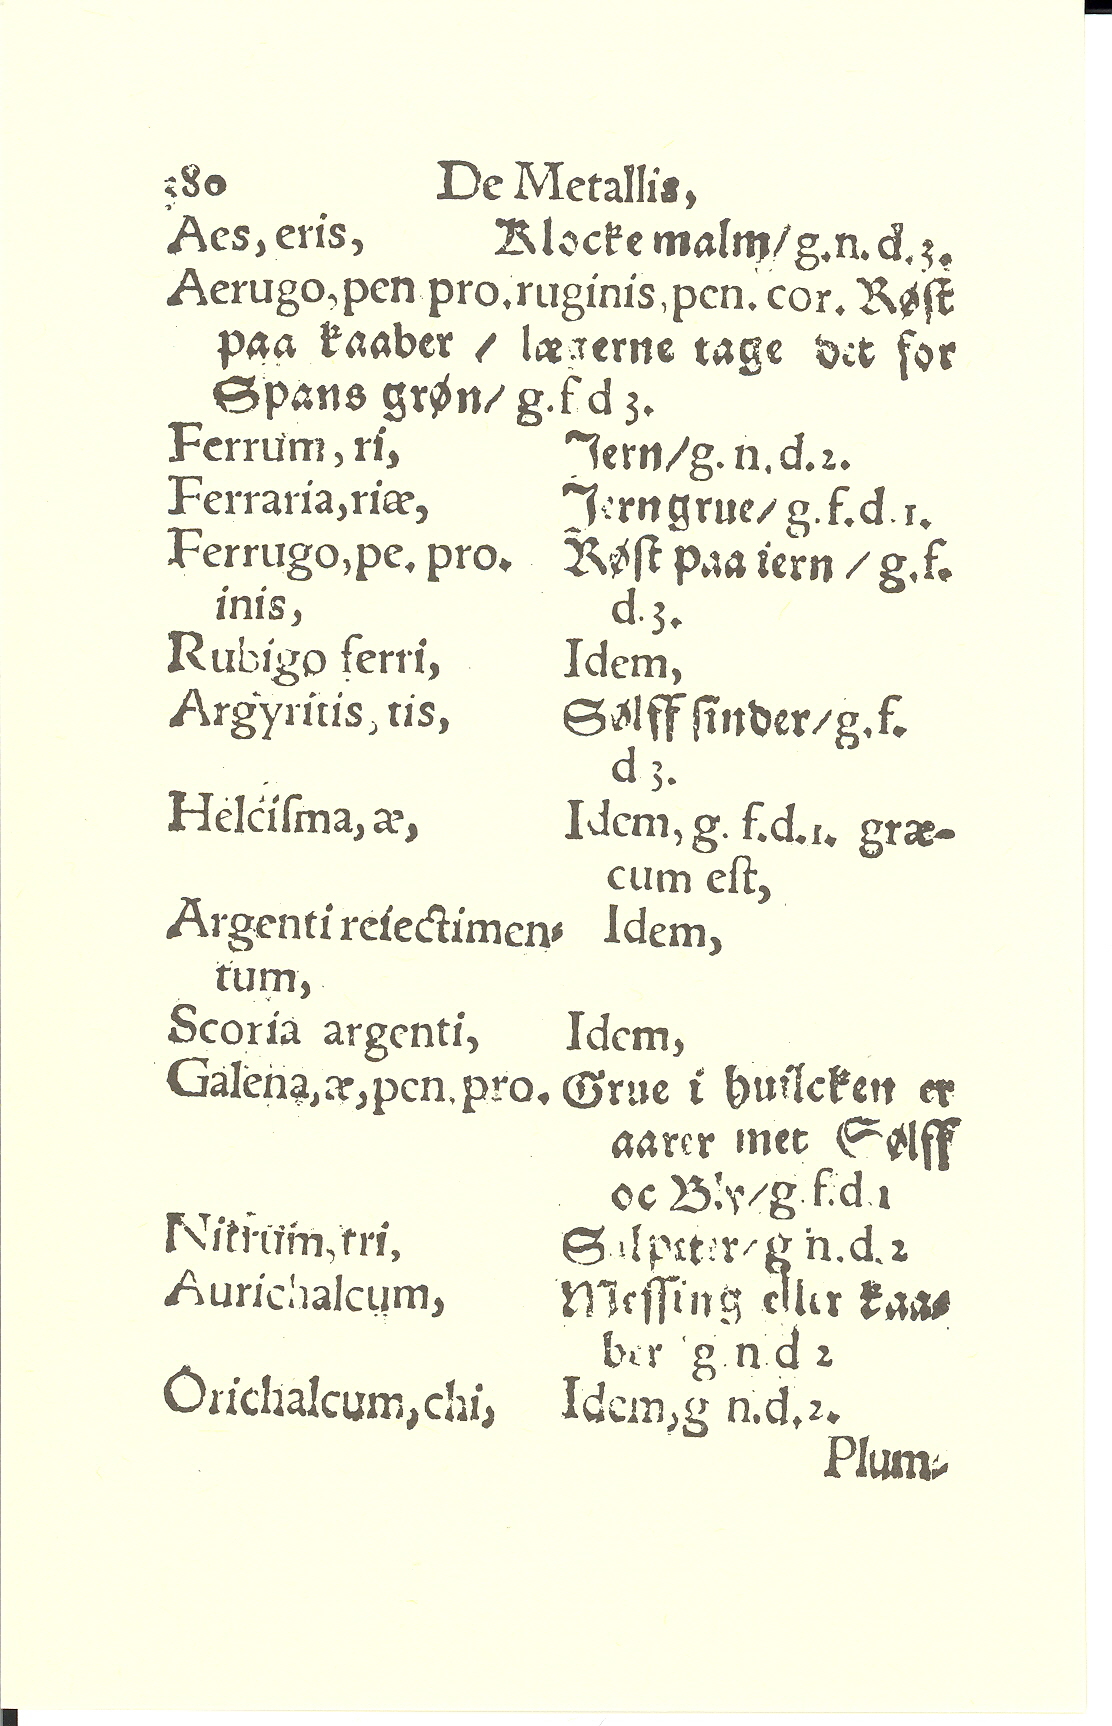 280 De Metallis,
Aes, eris, Klocke malm/ g. n. d. 3.
Aerugo, pen pro. ruginis, pen. cor. Røst
paa kaaber / lægerne tage det for
Spans grøn/ g. f d 3.
Ferrum, ri, Jern/ g. n. d. 2.
Ferraria, riæ, Jern grue/ g. f. d. 1.
Ferrugo, pe. pro. Røst paa iern / g. f.
inis, d. 3.
Rubigo ferri, Idem,
Argyritis, tis, Sølff sinder/ g. f.
d 3.
Helciſma, æ, Idem, g. f. d. 1. græ-
cum eſt,
Argenti reiectimen- Idem,
tum,
Scoria argenti, Idem,
Galena, æ, pen. pro. Grue i huilcken er
aarer met Sølff
oc Bly/ g f. d. 1
Nitrum, tri, Salpeter/ g n. d. 2
Aurichalcum, Messing eller kaa-
ber g n d 2
Orichalcum, chi, Idem, g n. d. 2.
Plum-